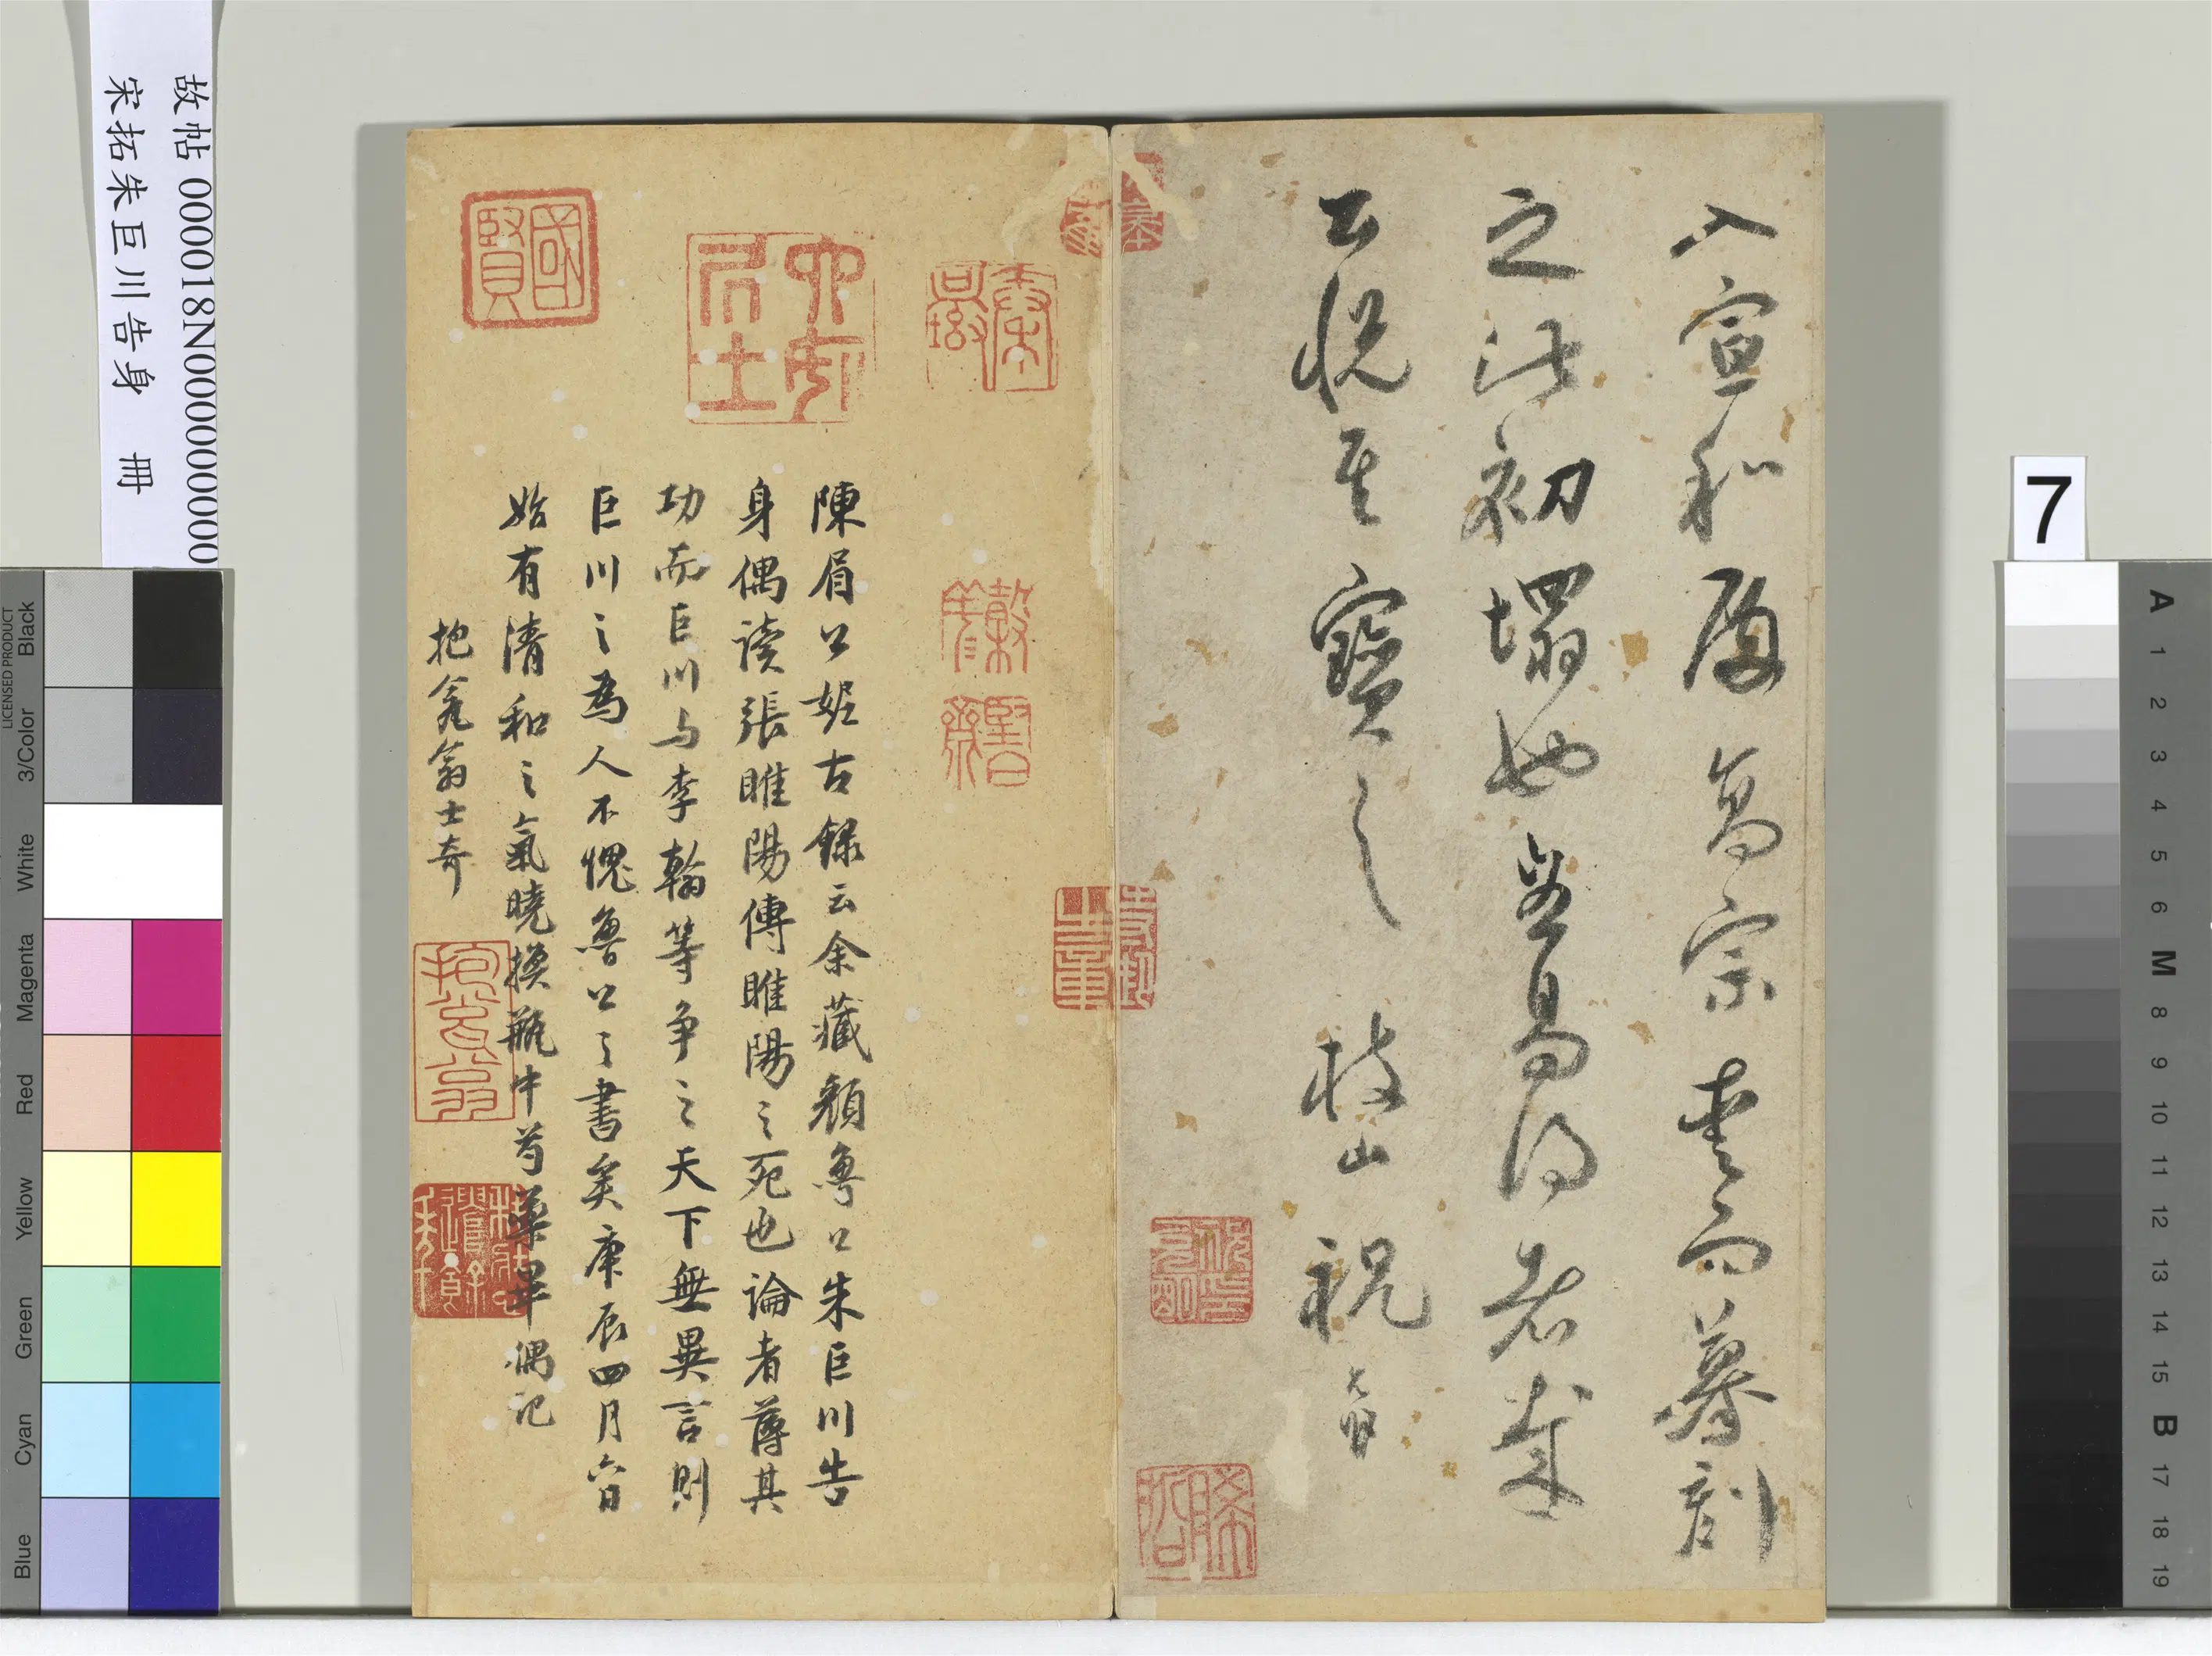 故帖 000018N000000000
宋拓朱巨川告身 冊
7
入宣和殿高宗賣而摹刻
之此初塌也豈易得者哉
公悅其寶之 枝山祝
陳眉公妮古録云余藏顏魯公朱巨川告
身偶读張睢陽傳睢陽之死也論者薄其
功而巨川与李翰等争之天下無異言則
巨川之為人不愧魯公之書矣庚辰四月六日
始有清和之氣曉換瓶中芍藥畢偶记
抱瓮翁士奇
國賢
六安
居士
Black
3/Color
White
Magenta
Red
Yellow
Green
Cyan
Blue
LICENSED PRODUCT
A
1
2
3
4
5
6
M
8
9
10
11
12
13
14
15
B
17
18
19